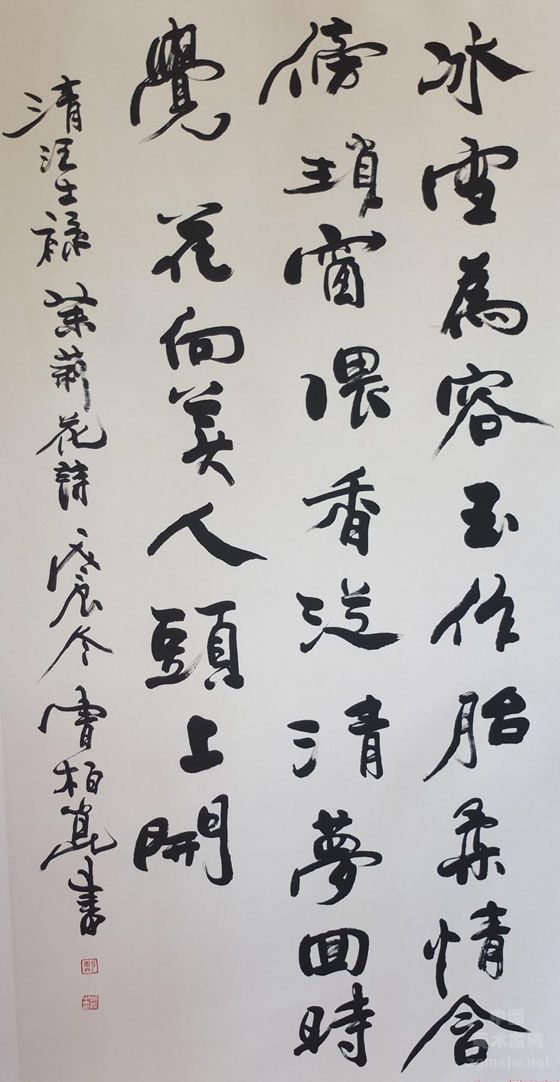 冰雪為容玉作胎柔情合
傍瑣窗隈香從清夢回時
覺花向美人頭上開
清汪士祿茉莉花詩戊辰冬曹柏崑書
中国美术家网
zgmsjw.net